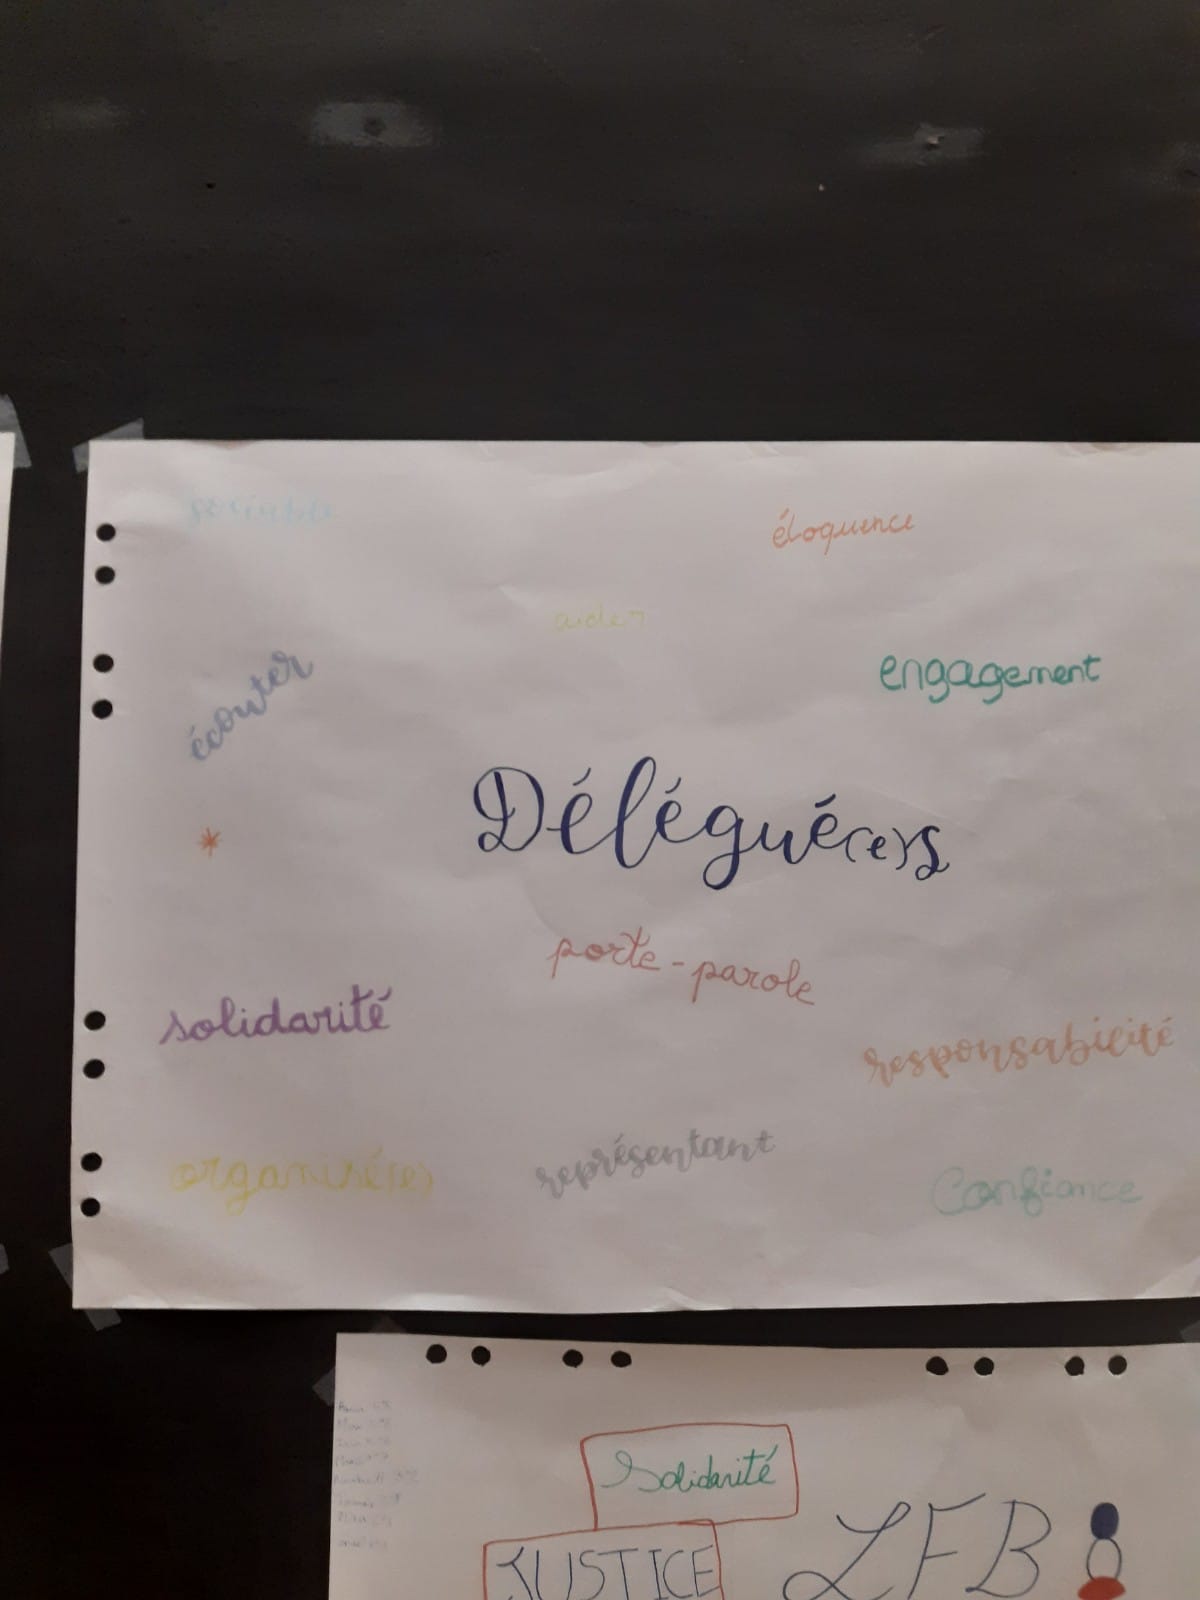 sociable
éloquence
aider
engagement
écouter
Délégué(e)s
*
porte-parole
solidarité
responsabilité
organisé(e)
représentant
Confiance
Solidarité
JUSTICE
LFB